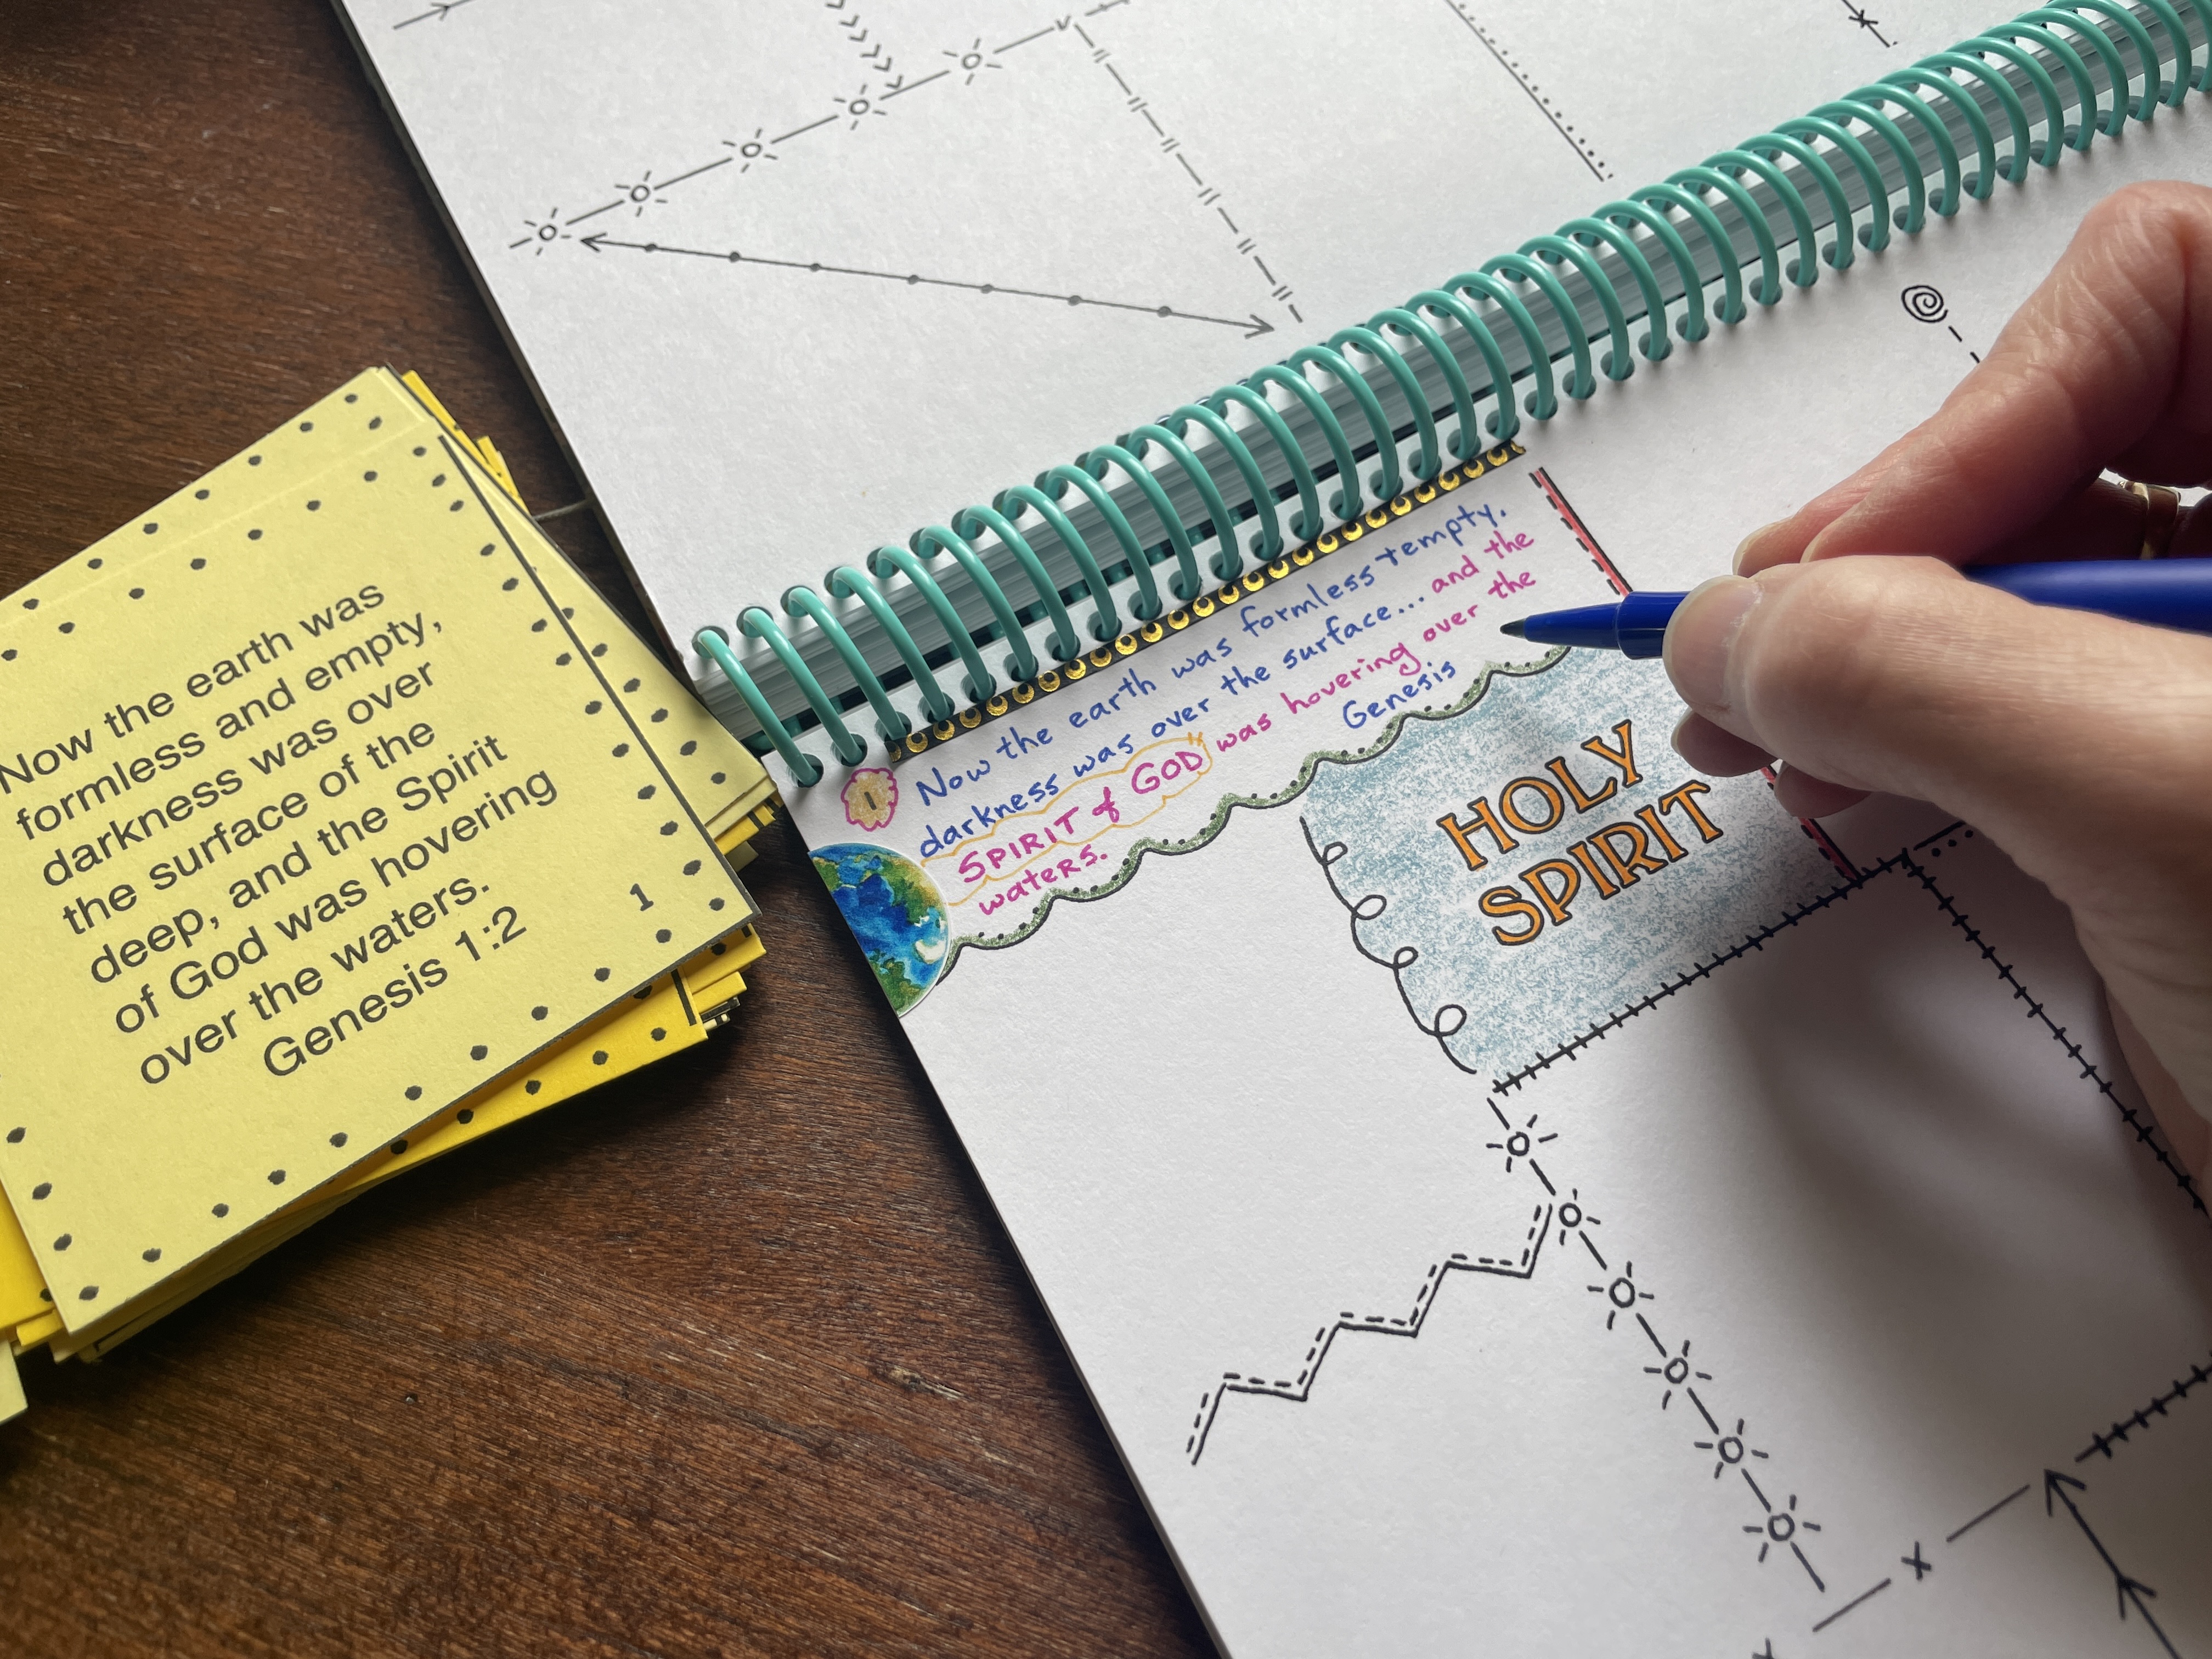 Now the earth was
formless and empty,
darkness was over
the surface of the
deep, and the Spirit
of God was hovering
over the waters.
Genesis 1:2
1
1
Now the earth was formless + empty.
darkness was over the surface... and the
SPIRIT of GOD was hovering over the
waters.
Genesis
HOLY
SPIRIT